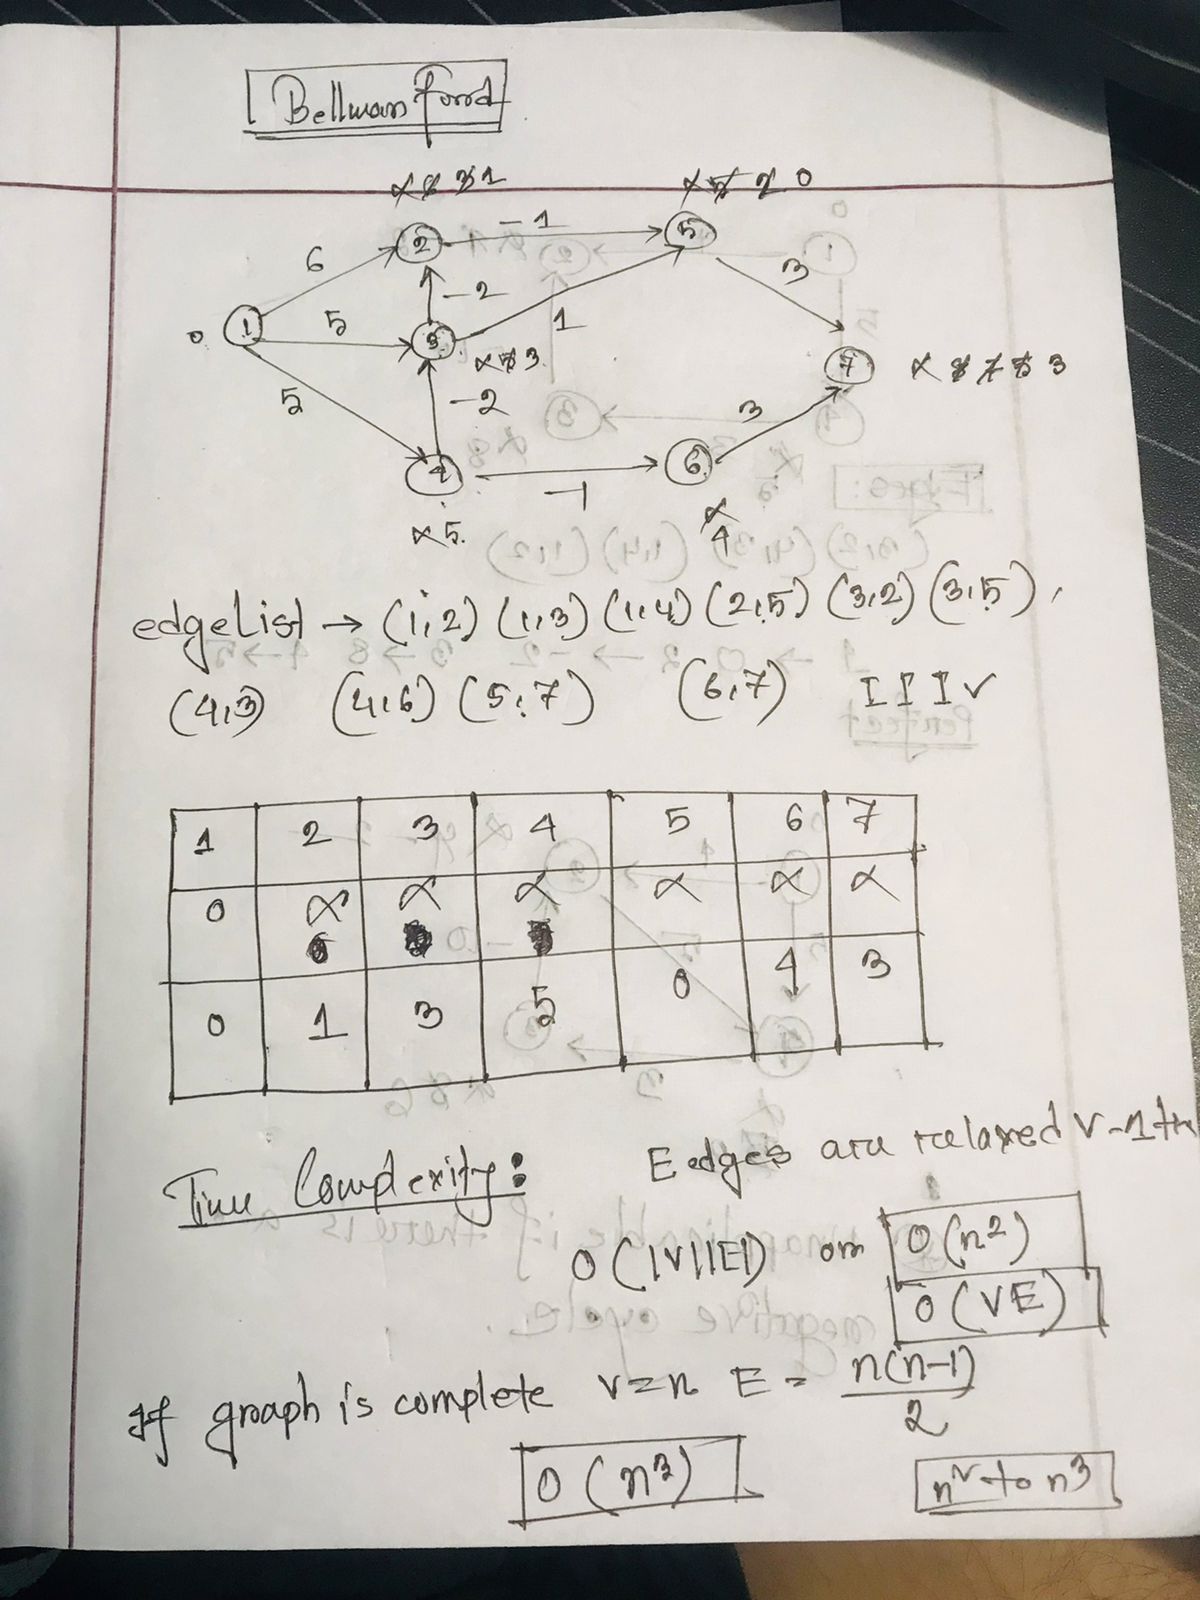 Bellman Ford
∝ 6 3 1
∝ 5 2 0
6
-1
2
5
3
-2
1
0
1
5
3
∝ 5 3
7
∝ 8 7 5 3
5
-2
3
4
-1
6
∝ 5
∝
4
edgeList → (1,2) (1,3) (1,4) (2,5) (3,2) (3,5),
(4,3) (4,6) (5,7) (6,7) I I I ✓
1 2 3 4 5 6 7
0 ∝ ∝ ∝ ∝ ∝ ∝
0 1 3 5 0 4 3
Time Complexity: E edges are relaxed V-1
O(|V||E|) or O(n²)
O(VE)
If graph is complete V=n E = n(n-1)/2
O(n³) n² to n³